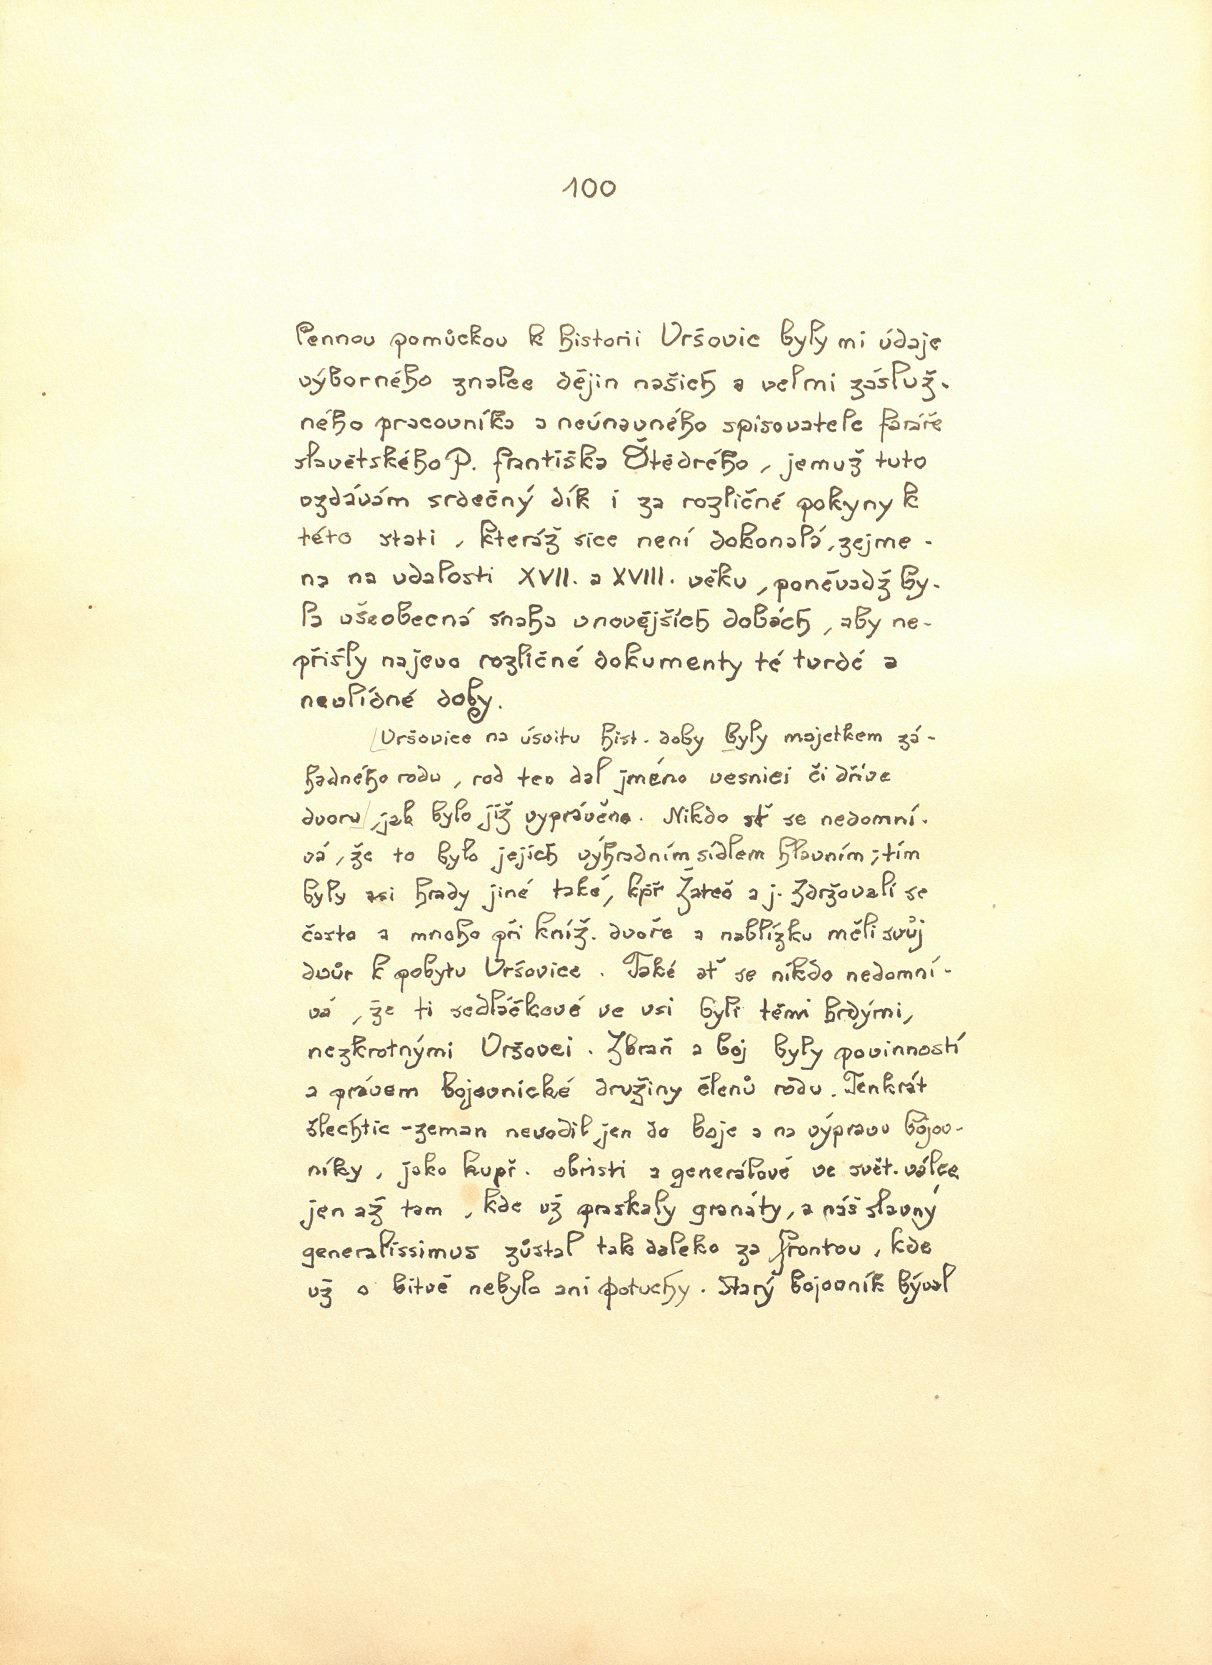 100
Cennou pomůckou k historii Vršovic byly mi údaje
výborného znalce dějin našich a velmi zásluž-
ného pracovníka a neúnavného spisovatele faráře
slavětského P. Františka Štědrého, jemuž tuto
vzdávám srdečný dík i za rozličné pokyny k
této stati, kteráž sice není dokonalá, zejme-
na na události XVII. a XVIII. věku, poněvadž by-
la všeobecná snaha v novějších dobách, aby ne-
přišly najevo rozličné dokumenty té tvrdé a
nevlídné doby.
Vršovice na úsvitu hist. doby byly majetkem zá-
hadného rodu, rod ten dal jméno vesnici či dříve
dvoru, jak bylo již vyprávěno. Nikdo ať se nedomní-
vá, že to bylo jejich výhradním sídlem hlavním; tím
byly asi hrady jiné také, kpř Žateč a j. Zdržovali se
často a mnoho při kníž. dvoře a nablízku měli svůj
dvůr k pobytu Vršovice. Také ať se nikdo nedomní-
vá, že ti sedláčkové ve vsi byli těmi hrdými,
nezkrotnými Vršovci. Zbraň a boj byly povinností
a právem bojovnické družiny členů rodu. Tenkrát
šlechtic - zeman nevodil jen do boje a na výpravu bojov-
níky, jako kupř. obršti a generálové ve svět. válce
jen až tam, kde už praskaly granáty, a náš slavný
generalissimus zůstal tak daleko za frontou, kde
už o bitvě nebylo ani potuchy. Starý bojovník býval